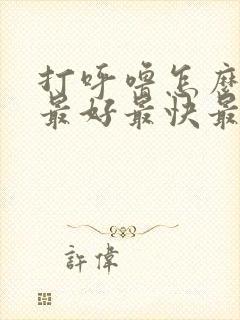 打呼噜怎麼
最好最快最
許偉